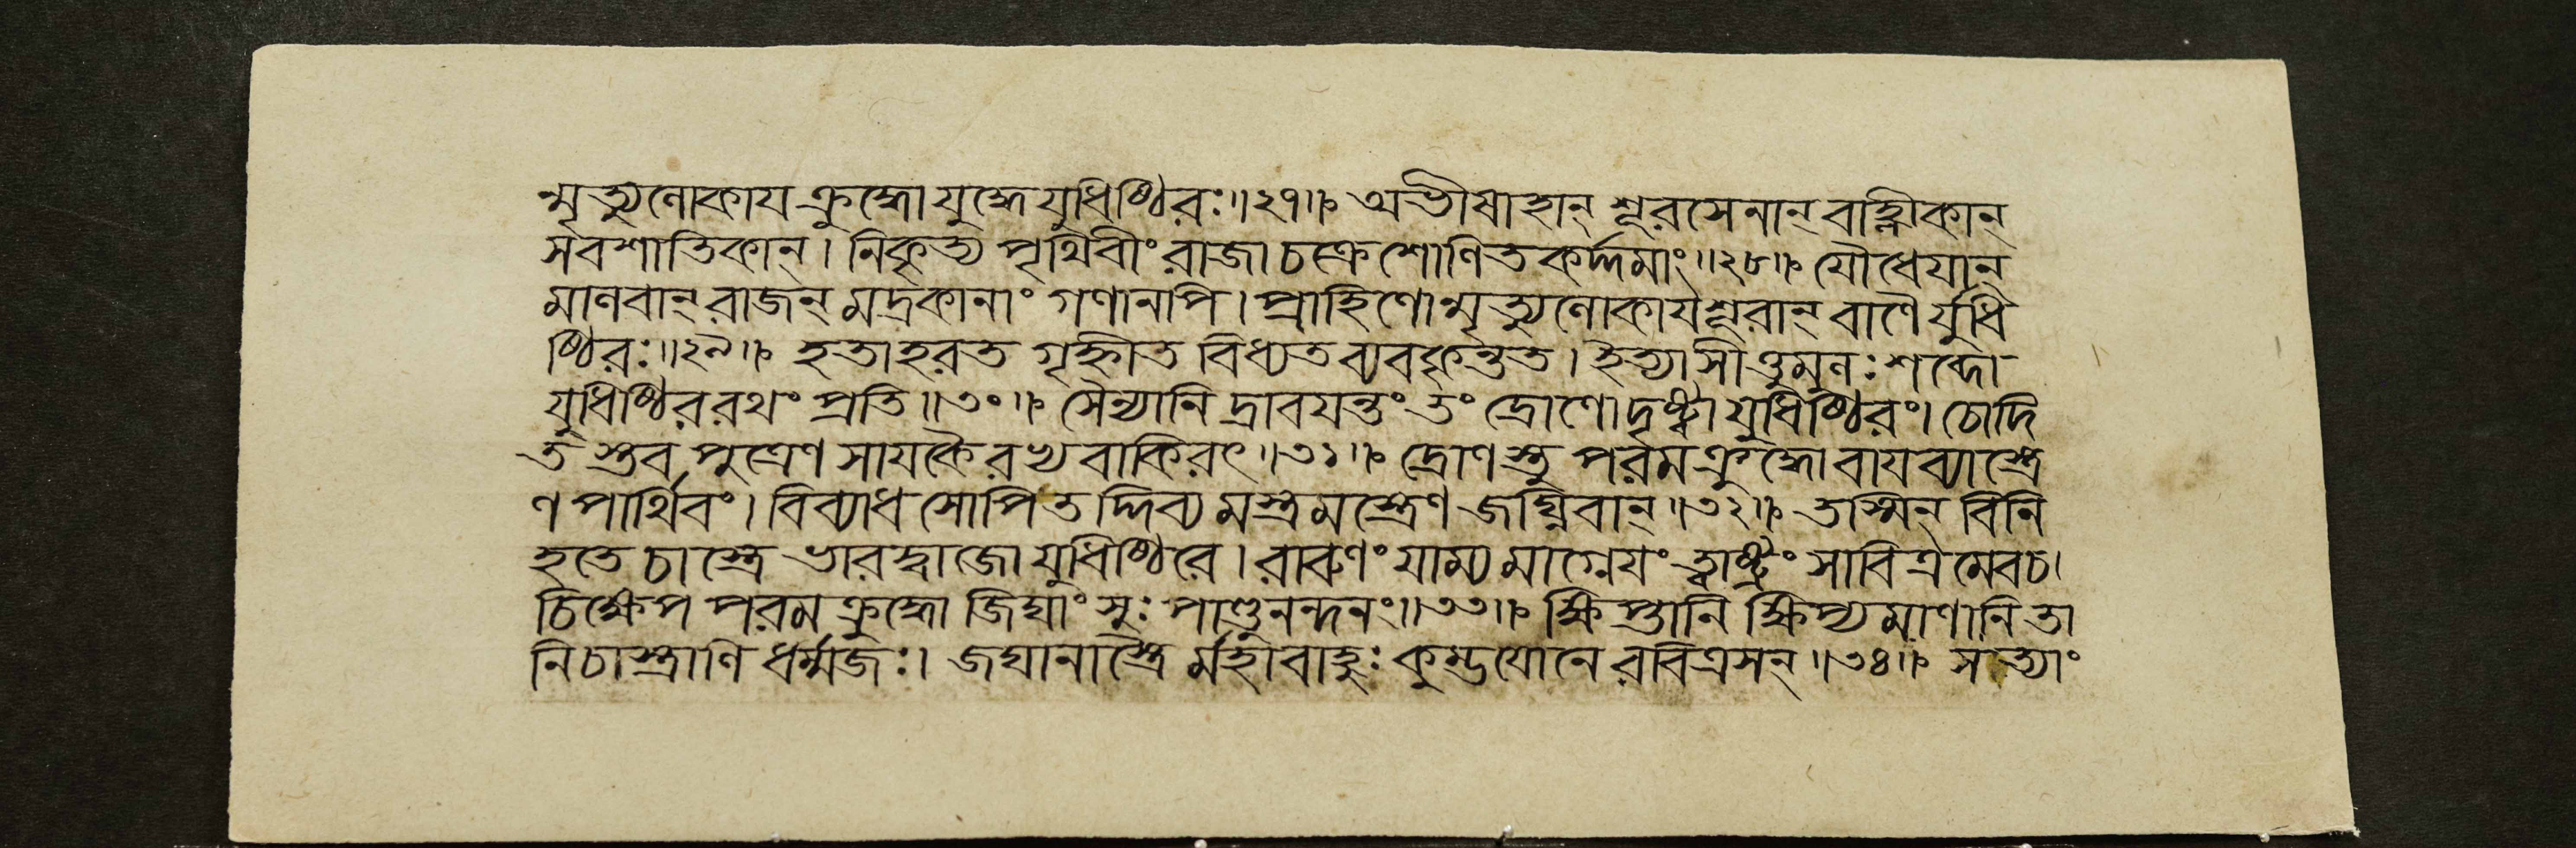 ন্মৃত্যুলোকায ক্রুদ্ধো যুদ্ধে যুধিষ্ঠিরঃ॥২৭॥ অভীষাহান্ শূরসেনান্ বাহ্লীকান্
সবশাতিকান্। নিকৃত্য পৃথিবীং রাজা চক্রে শোণিতকর্দ্দমাং॥২৮॥ যৌধেযান্
মালবান্ রাজন্ মদ্রকানাং গণানপি। প্রাহিণোন্মৃত্যুলোকায শূরান্ বাণৈর্যুধি
ষ্ঠিরঃ॥২৯॥ হতাহরত গৃহ্নীত বিধ্যত ব্যবকৃন্তত। ইত্যাসীত্তুমুলঃ শব্দো
যুধিষ্ঠিররথং প্রতি॥৩০॥ সৈন্যানি দ্রাবযন্তং তং দ্রোণো দৃষ্ট্বা যুধিষ্ঠিরং। চোদি
তস্তব পুত্রেণ সাযকৈরভ্যবাকিরৎ॥৩১॥ দ্রোণস্তু পরমক্রুদ্ধো বাযব্যাস্ত্রে
ণ পার্থিবং। বিব্যাধ সোপি তদ্দিব্যমস্ত্রমস্ত্রেণ জঘ্নিবান্॥৩২॥ তস্মিন্ বিনি
হতে চাস্ত্রে ভারদ্বাজো যুধিষ্ঠিরে। বারুণং যাম্যমাগ্নেযং ত্বাষ্ট্রং সাবিত্রমেবচ।
চিক্ষেপ পরমক্রুদ্ধো জিঘাংসুঃ পাণ্ডুনন্দনং॥৩৩॥ ক্ষিপ্তানি ক্ষিপ্যমাণানি তা
নি চাস্ত্রাণি ধর্ম্মজঃ। জঘানাস্ত্রৈর্মহাবাহুঃ কুম্ভযোনেরবিত্রসন্॥৩৪॥ সত্যাং